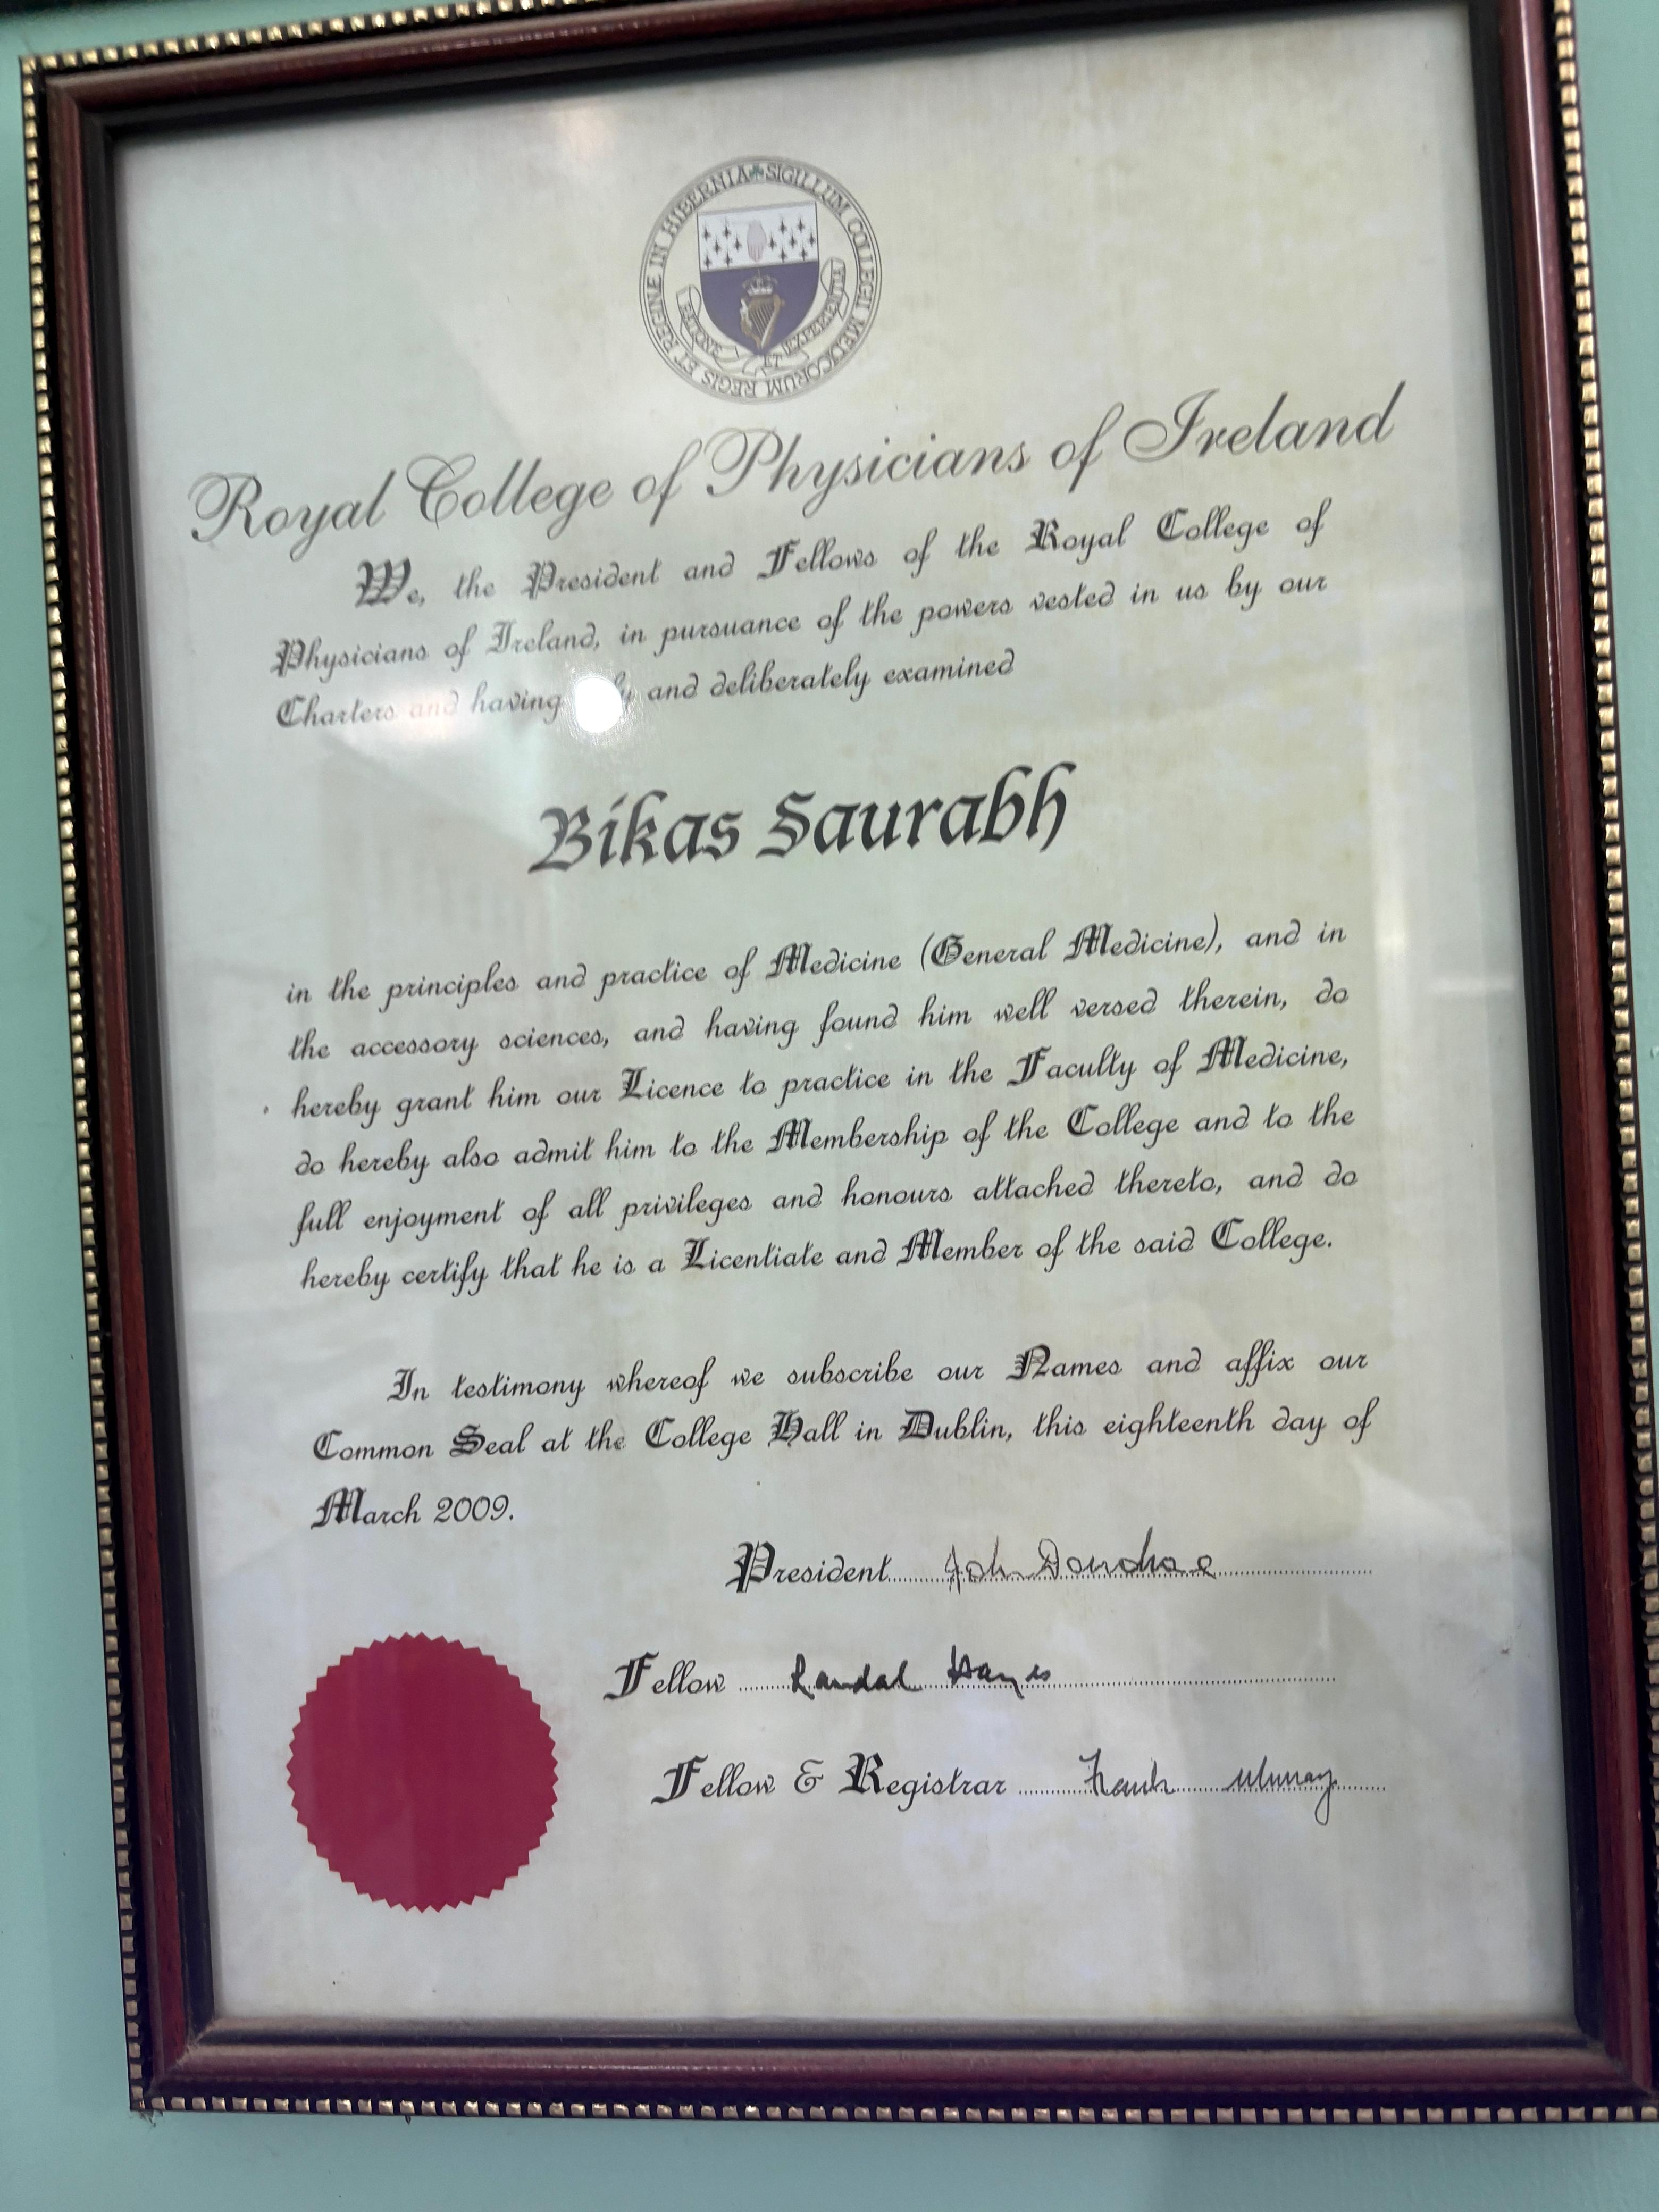 SIGILLUM COLLEGII MEDICORUM REGIS ET REGINE IN HIBERNIA
RATIONE ET EXPERIENTIA
Royal College of Physicians of Ireland
We, the President and Fellows of the Royal College of
Physicians of Ireland, in pursuance of the powers vested in us by our
Charters and having and deliberately examined
Bikas Saurabh
in the principles and practice of Medicine (General Medicine), and in
the accessory sciences, and having found him well versed therein, do
hereby grant him our Licence to practice in the Faculty of Medicine,
do hereby also admit him to the Membership of the College and to the
full enjoyment of all privileges and honours attached thereto, and do
hereby certify that he is a Licentiate and Member of the said College.
In testimony whereof we subscribe our Names and affix our
Common Seal at the College Hall in Dublin, this eighteenth day of
March 2009.
President John Donohoe
Fellow Randal Hayes
Fellow & Registrar Frank Murray